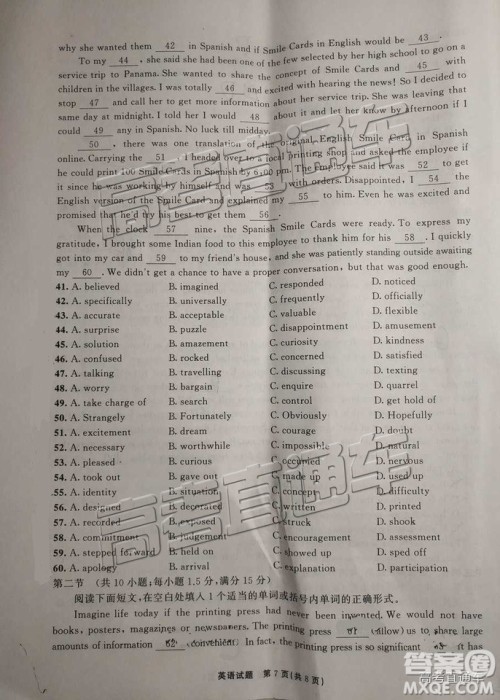 why she wanted them 42 in Spanish and if Smile Cards in English would be 43 .
To my 44 , she said she had been one of the few selected by her high school to go on a
service trip to Panama. She wanted to share the concept of Smile Cards and 45 with
children in the villages. I was totally 46 and excited with hearing the news! So I decided to
stop 47 and call her to get more information about her service trip. She was leaving that
same day at midnight. I told her I would 48 about it and let her know by afternoon if I
could 49 any in Spanish. No luck till midday.
50 , there was one translation of the original English Smile Card in Spanish
online. Carrying the 51 , I headed over to a local printing shop and asked the employee if
he could print 100 Smile Cards in Spanish by 6:00 pm. The employee said it was 52 to get
it since he was working by himself and was 53 with orders. Disappointed, I 54 the
English version of the Smile Card and explained my 55 to him. Even he was excited and
promised that he'd try his best to get them 56 .
When the clock 57 nine, the Spanish Smile Cards were ready. To express my
gratitude, I brought some Indian food to this employee to thank him for his 58 . I quickly
got into my car and 59 to my friend's house, and she was patiently standing outside awaiting
my 60 . We didn't get a chance to have a proper conversation, but that was good enough.
41. A. believed B. imagined C. responded D. noticed
42. A. specifically B. universally C. frequently D. officially
43. A. accurate B. acceptable C. valuable D. flexible
44. A. surprise B. puzzle C. disappointment D. amusement
45. A. solution B. amazement C. curiosity D. kindness
46. A. confused B. rocked C. concerned D. satisfied
47. A. talking B. travelling C. discussing D. texting
48. A. worry B. bargain C. enquire D. quarrel
49. A. take charge of B. search C. control D. get hold of
50. A. Strangely B. Fortunately C. Obviously D. Hopefully
51. A. excitement B. dream C. courage D. doubt
52. A. necessary B. worthwhile C. impossible D. natural
53. A. pleased B. curious C. occupied D. nervous
54. A. took out B. gave out C. made up D. used up
55. A. identity B. situation C. concept D. difficulty
56. A. designed B. decorated C. written D. printed
57. A. recorded B. exposed C. struck D. proved
58. A. commitment B. judgement C. encouragement D. assessment
59. A. stepped forward B. held on C. showed up D. drove off
60. A. apology B. arrival C. explanation D. invitation
第二节 (共 10 小题;每小题 1.5 分,满分 15 分)
阅读下面短文,在空白处填入 1 个适当的单词或括号内单词的正确形式。
Imagine life today if the printing press had never been invented. We would not have
books, posters, magazines or newspapers. The printing press 61 (allow) us to share large
amounts of information 62 (convenient). In fact, the printing press is so significant 63 it has
英语试题 第 7 页(共 8 页)
高考直通车
高考直通车
答案圈